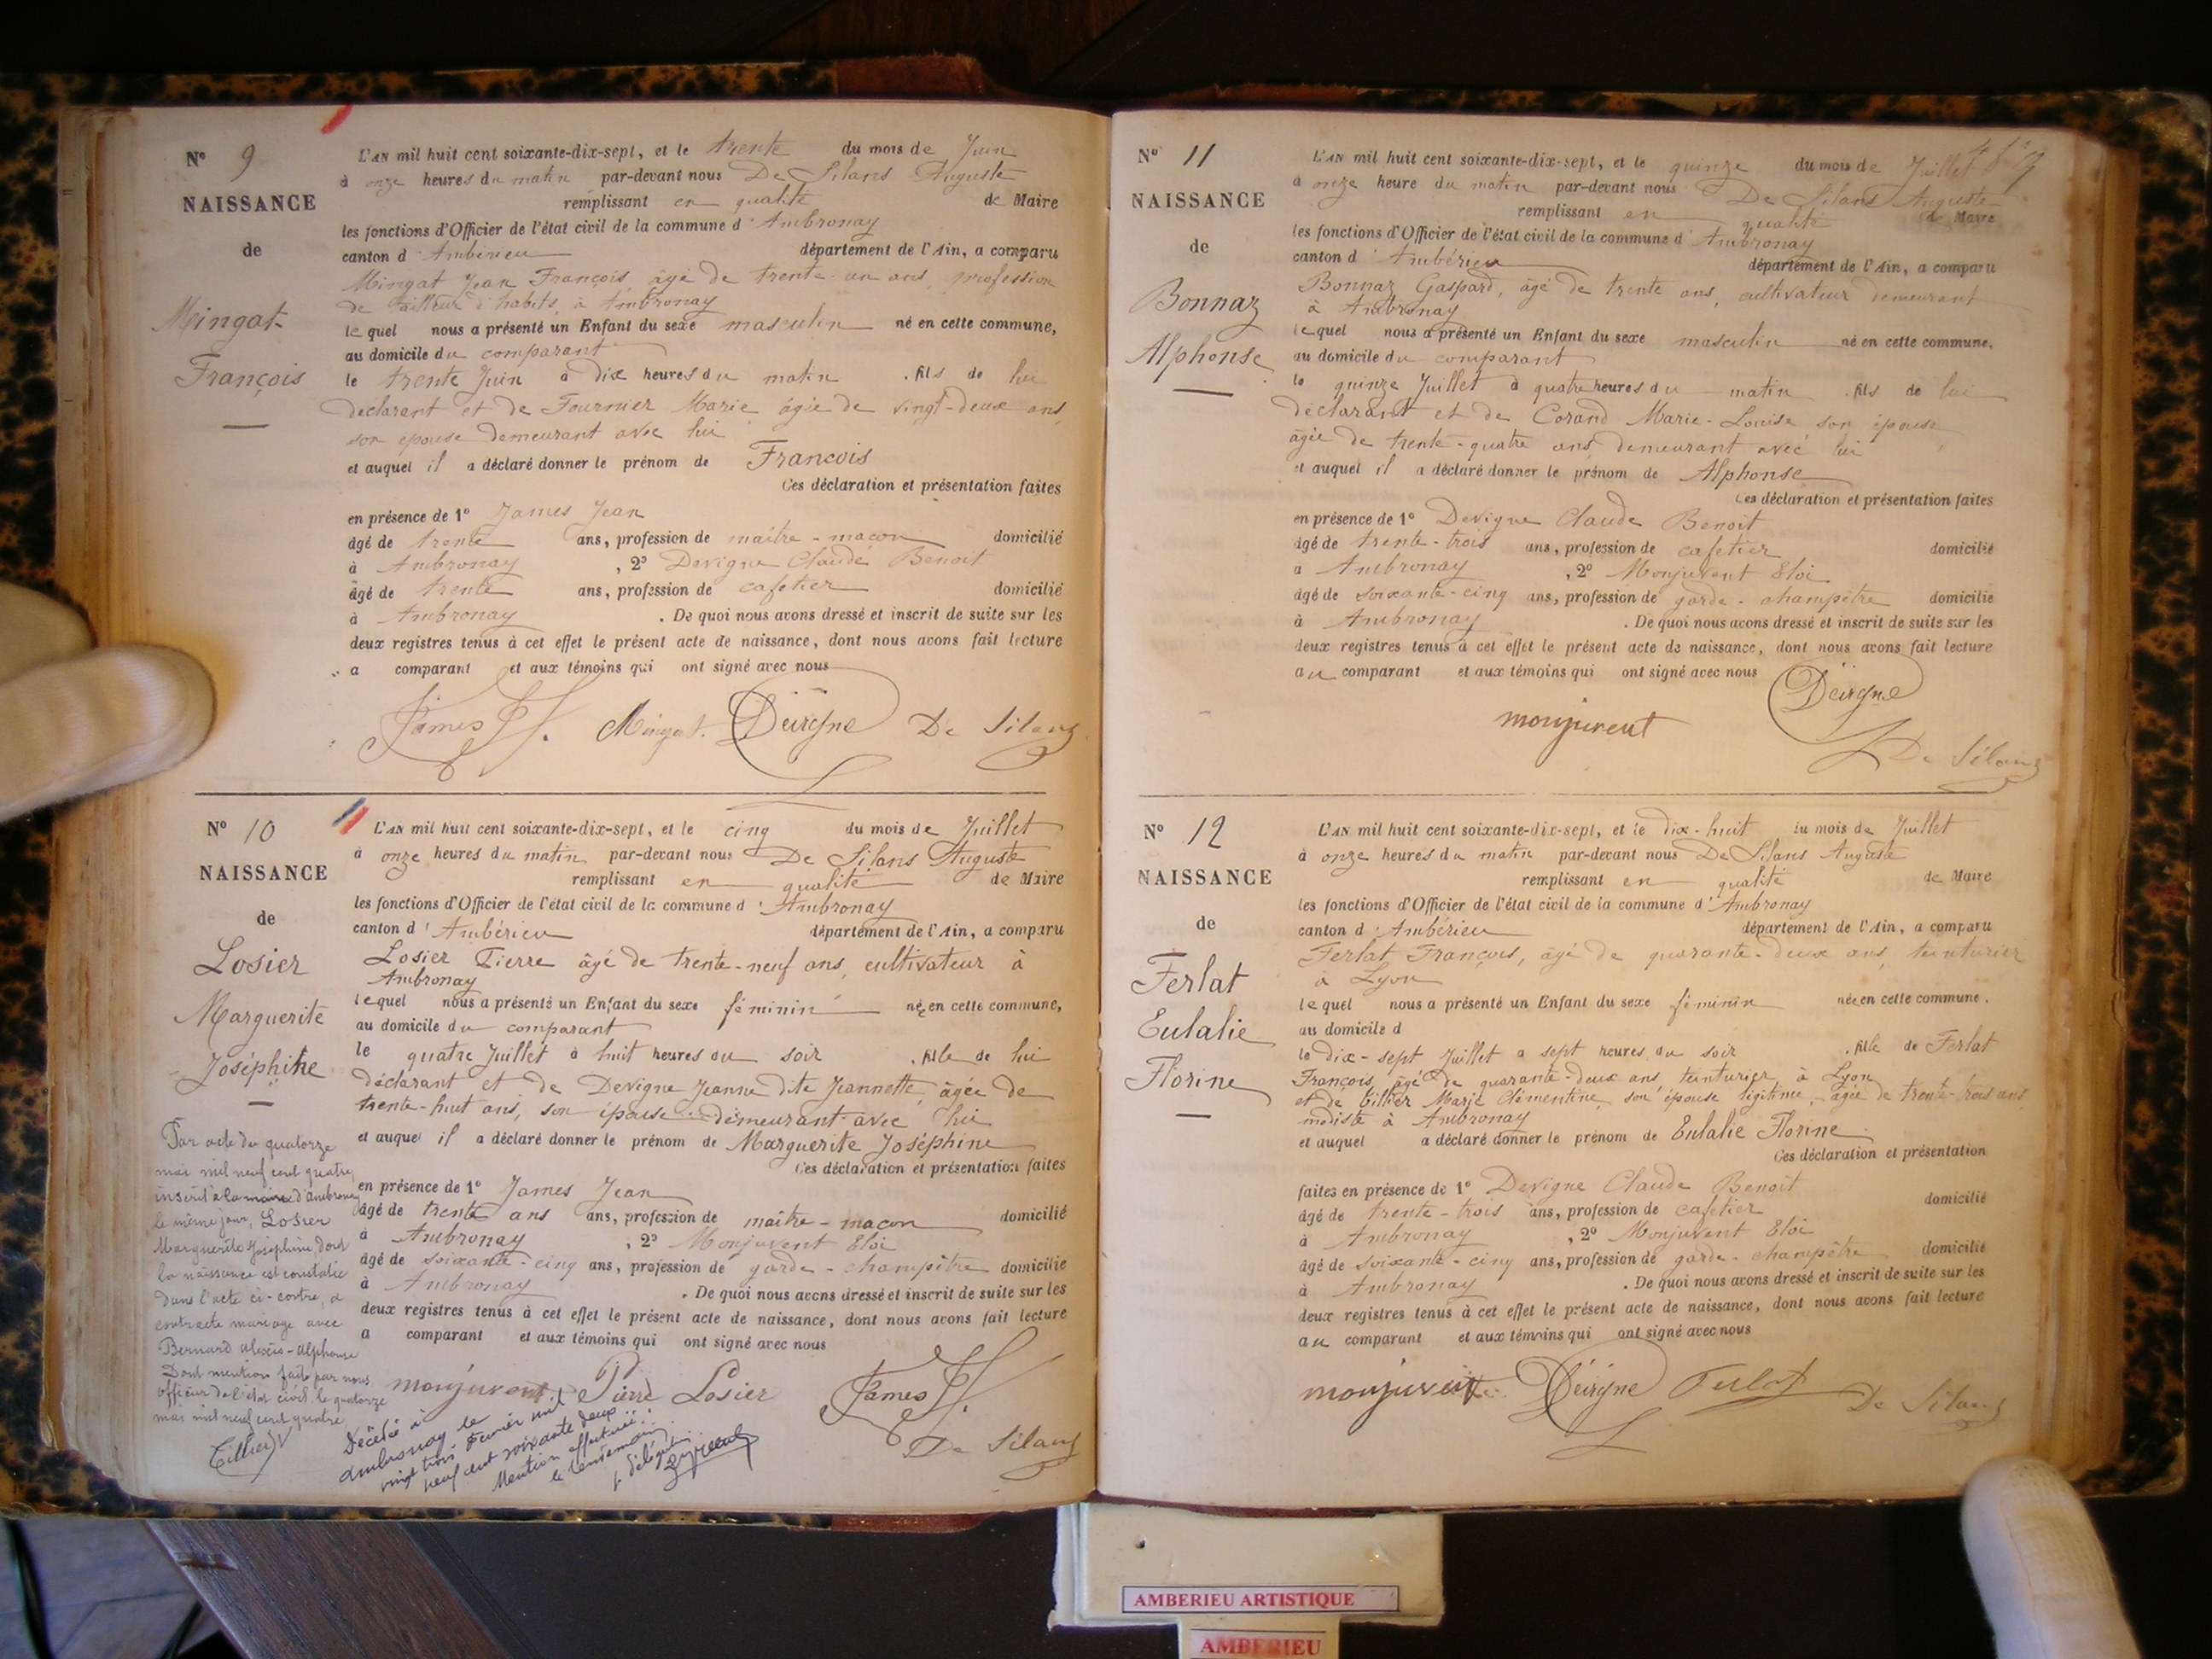 N° 9
NAISSANCE
de
Mingat
François
L'AN mil huit cent soixante-dix-sept, et le trente du mois de Juin
à onze heures du matin par-devant nous De Silans Auguste
remplissant en qualité de Maire
les fonctions d'Officier de l'état civil de la commune d'Ambronay
canton d'Ambérieu département de l'Ain, a comparu
Mingat Jean François, âgé de trente-un ans, profession
de tailleur d'habits, à Ambronay
lequel nous a présenté un Enfant du sexe masculin né en cette commune,
au domicile du comparant
le trente Juin à dix heures du matin . fils de lui
déclarant et de Fournier Marie âgée de vingt-deux ans,
son épouse demeurant avec lui
et auquel il a déclaré donner le prénom de Francois
Ces déclaration et présentation faites
en présence de 1° James Jean
âgé de trente ans, profession de maître-macon domicilié
à Ambronay , 2° Devigne Claude Benoit
âgé de trente ans, profession de cafetier domicilié
à Ambronay . De quoi nous avons dressé et inscrit de suite sur les
deux registres tenus à cet effet le présent acte de naissance, dont nous avons fait lecture
a comparant et aux témoins qui ont signé avec nous
James Mingat. Devigne De Silans
N° 10
NAISSANCE
de
Losier
Marguerite
Joséphine
L'AN mil huit cent soixante-dix-sept, et le cinq du mois de Juillet
à onze heures du matin par-devant nous De Silans Auguste
remplissant en qualité de Maire
les fonctions d'Officier de l'état civil de la commune d'Ambronay
canton d'Ambérieu département de l'Ain, a comparu
Losier Pierre âgé de trente-neuf ans, cultivateur à
Ambronay
lequel nous a présenté un Enfant du sexe féminin née en cette commune,
au domicile du comparant
le quatre Juillet à huit heures du soir . fille de lui
déclarant et de Devigne Jeanne dite Jeannette, âgée de
trente-huit ans, son épouse demeurant avec lui
et auquel il a déclaré donner le prénom de Marguerite Joséphine
Ces déclaration et présentation faites
en présence de 1° James Jean
âgé de trente ans ans, profession de maître-macon domicilié
à Ambronay , 2° Monjuvent Eloi
âgé de soixante-cinq ans, profession de garde-champêtre domicilié
à Ambronay . De quoi nous avons dressé et inscrit de suite sur les
deux registres tenus à cet effet le présent acte de naissance, dont nous avons fait lecture
a comparant et aux témoins qui ont signé avec nous
monjuvent Pierre Losier James
De Silans
Par acte du quatorze
mai mil neuf cent quatre
inscrit à la mairie d'ambronay
le même jour, Losier
Marguerite Joséphine, dont
la naissance est constatée
dans l'acte ci-contre, a
contracté mariage avec
Bernard Alexis-Alphonse
Dont mention faite par nous
officier de l'état civil le quatorze
mai mil neuf cent quatre
Tillier
Décédée à
Ambronay le
vingt trois Février mil
neuf cent soixante deux
Mention effectuée
le lendemain
p. délégation
N° 11
NAISSANCE
de
Bonnaz
Alphonse
L'AN mil huit cent soixante-dix-sept, et le quinze du mois de Juillet
à onze heure du matin par-devant nous De Silans Auguste
remplissant en qualité de Maire
les fonctions d'Officier de l'état civil de la commune d'Ambronay
canton d'Ambérieu département de l'Ain, a comparu
Bonnaz Gaspard, âgé de trente ans, cultivateur demeurant
à Ambronay
lequel nous a présenté un Enfant du sexe masculin né en cette commune,
au domicile du comparant
le quinze Juillet à quatre heures du matin . fils de lui
déclarant et de Corand Marie-Louise son épouse,
âgée de trente-quatre ans demeurant avec lui
et auquel il a déclaré donner le prénom de Alphonse
Ces déclaration et présentation faites
en présence de 1° Devigne Claude Benoit
âgé de trente-trois ans, profession de cafetier domicilié
à Ambronay , 2° Monjuvent Eloi
âgé de soixante-cinq ans, profession de garde-champêtre domicilié
à Ambronay . De quoi nous avons dressé et inscrit de suite sur les
deux registres tenus à cet effet le présent acte de naissance, dont nous avons fait lecture
au comparant et aux témoins qui ont signé avec nous
monjuvent Devigne
De Silans
N° 12
NAISSANCE
de
Ferlat
Eulalie
Florine
L'AN mil huit cent soixante-dix-sept, et le dix-huit du mois de Juillet
à onze heures du matin par-devant nous De Silans Auguste
remplissant en qualité de Maire
les fonctions d'Officier de l'état civil de la commune d'Ambronay
canton d'Ambérieu département de l'Ain, a comparu
Ferlat François, âgé de quarante-deux ans, teinturier
à Lyon
lequel nous a présenté un Enfant du sexe féminin née en cette commune.
au domicile d
le dix-sept Juillet à sept heures du soir . fille de Ferlat
François âgé de quarante-deux ans, teinturier à Lyon
et de Tillier Marie Clémentine, son épouse légitime, âgée de trente-trois ans
modiste à Ambronay
et auquel a déclaré donner le prénom de Eulalie Florine
Ces déclaration et présentation
faites en présence de 1° Devigne Claude Benoit
âgé de trente-trois ans, profession de cafetier domicilié
à Ambronay , 2° Monjuvent Eloi
âgé de soixante-cinq ans, profession de garde-champêtre domicilié
à Ambronay . De quoi nous avons dressé et inscrit de suite sur les
deux registres tenus à cet effet le présent acte de naissance, dont nous avons fait lecture
au comparant et aux témoins qui ont signé avec nous
monjuvent Devigne Ferlat De Silans
AMBERIEU ARTISTIQUE
AMBERIEU